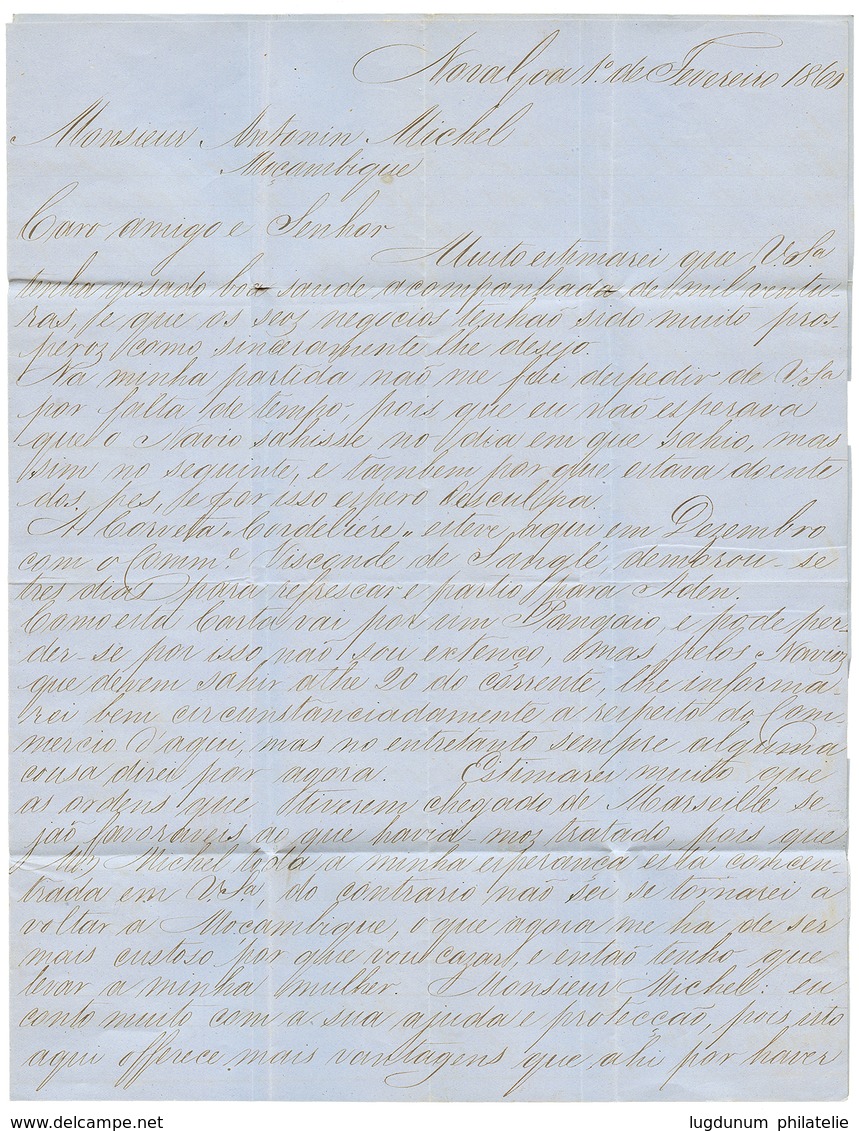 Nova Goa 1º de Fevereiro 1860
Monsieur Antonin Michel
Moçambique
Caro amigo e Senhor
Muito estimarei que V.Sª
tenha gosado boa saude acompanhada de mil ventu-
ras, e que os seoz negocios tenhaõ sido muito pros-
peroz como sinceramente lhe desejo.
Na minha partida naõ me fui despedir de V.Sª
por falta de tempo, pois que eu naõ esperava
que o Navio sahisse no dia em que sahio, mas
sim no seguinte, e tambem por que estava doente
dos pes, e por isso espero desculpa.
A Corveta "Cordeliére" esteve aqui em Dezembro
com o Comme. Visconde de Langlé demorou-se
tres dias para refrescar e partio para Aden.
Como esta Carta vai por um Pangaio, e pode per-
der-se por isso naõ sou extenço, mas pelos Navioz
que devem sahir athe 20 do corrente, lhe informa-
rei bem circunstanciadamente a respeito do Com-
mercio d'aqui, mas no entretanto sempre alguma
cousa direi por agora. Estimarei muito que
as ordens que tiverem chegado de Marseille se-
jaõ favoraveis ao que haviamoz tratado pois que
Mr. Michel toda a minha esperança esta concen-
trada em V.Sª, do contrario naõ sei si tornarei a
voltar a Moçambique, o que agora me ha de ser
mais custoso por que vou cazar, e entaõ tenho que
levar a minha mulher. Monsieur Michel: eu
conto muito com a sua ajuda e protecçaõ, pois isto
aqui offerece mais vantagens que ahi por haver
lugdunum philatelie
www.delcampe.net